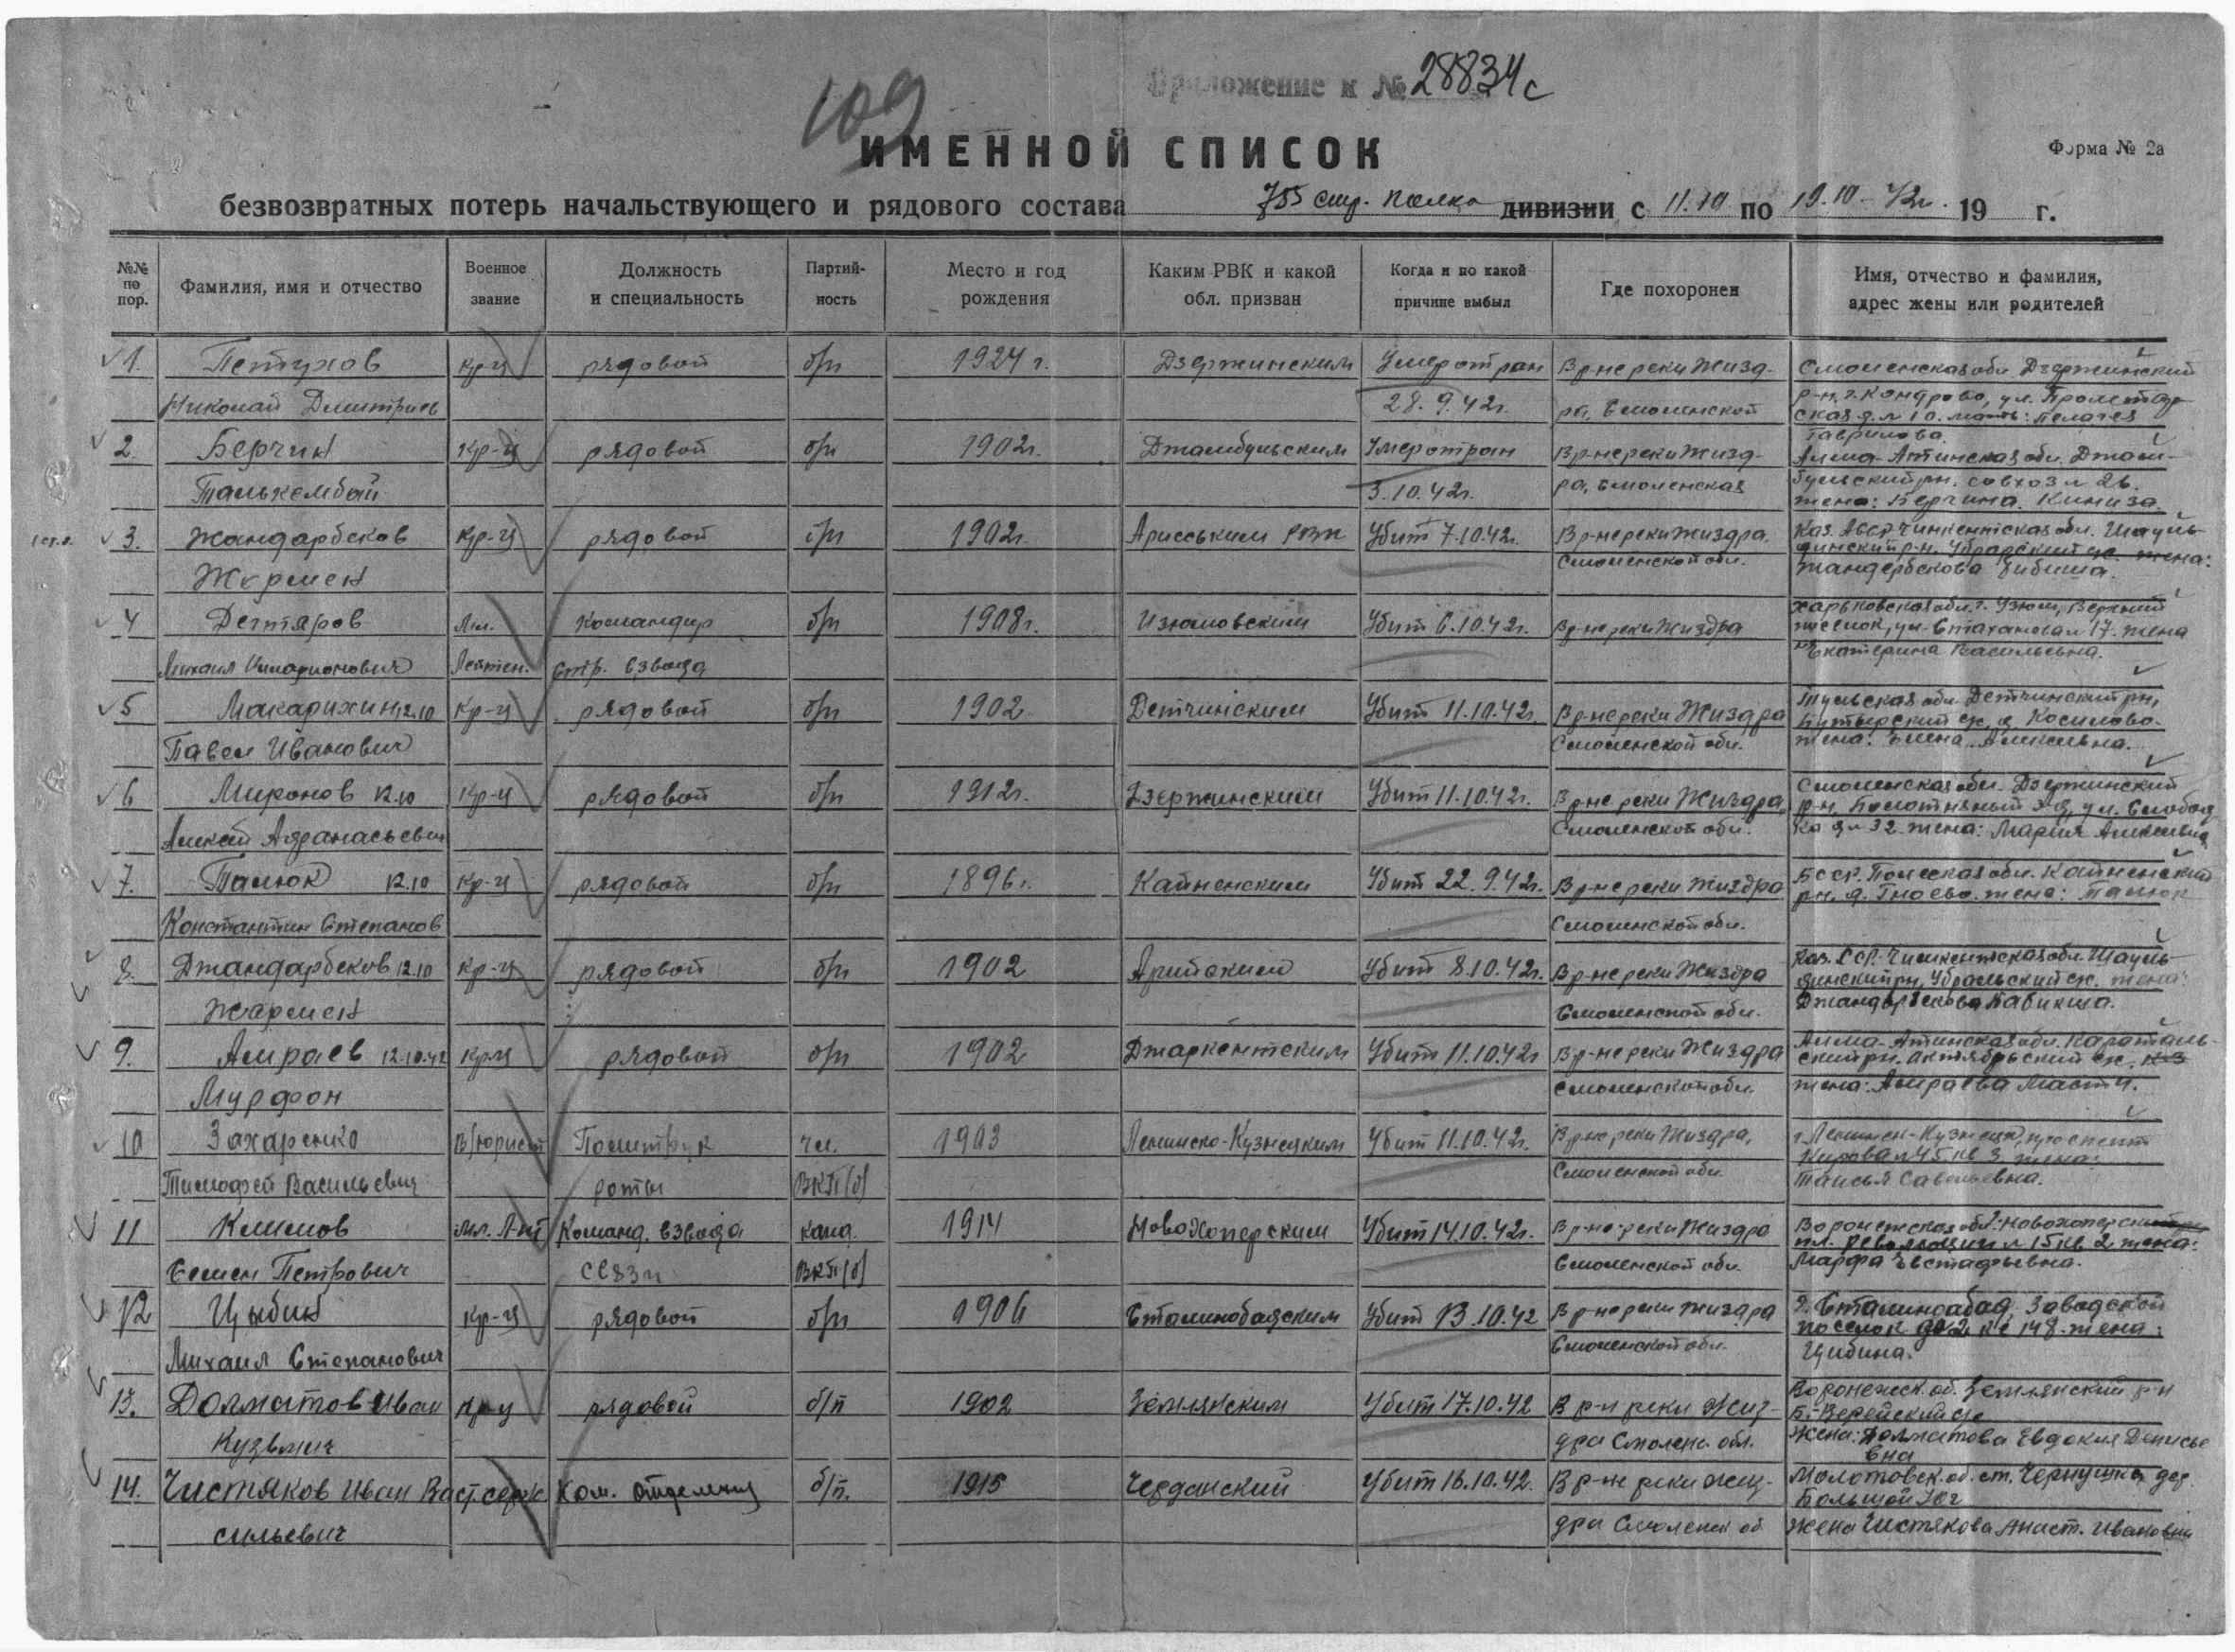 109
Приложение к № 28834с
ИМЕННОЙ СПИСОК
Форма № 2а
безвозвратных потерь начальствующего и рядового состава 755 стр. полка дивизии с 11.10 по 19.10.42г. 19 г.
№№ по пор.
Фамилия, имя и отчество
Военное звание
Должность и специальность
Партийность
Место и год рождения
Каким РВК и какой обл. призван
Когда и по какой причине выбыл
Где похоронен
Имя, отчество и фамилия, адрес жены или родителей
1. Петухов кр-ц рядовой б/п 1924 г. Дзержинским Умер от ран В р-не реки Жизд- Смоленская обл. Дзержинский
Николай Дмитриев 28.9.42г. ра, Смоленской р-н, г. Кондрово, ул. Пролетар
ская д.№ 10. мать: Пелагея
Гаврилова.
2. Берчин кр-ц рядовой б/п 1902г. Джамбульским Умер от ран В р-не реки Жизд- Алма-Атинская обл. Джам-
Талькембай 3.10.42г. ра, Смоленская бульский рн. совхоз № 26.
жена: Берчина Киниза.
3. Жандарбеков кр-ц рядовой б/п 1902г. Арисським РВК Убит 7.10.42г. В р-не реки Жиздра. Каз. АССР Чимкентская обл. Шауль
Жермен Смоленской обл. динский р-н, Убрарский с/с жена:
Жандербекова
4 Дегтяров Мл. Командир б/п 1908г. Изюмовским Убит 6.10.42г. В р-не реки Жиздра Харьковская обл. г. Узюм, Верхний
Михаил Иларионович Лейтен. стр. взвода поселок, ул. Стаханова № 17. жена
Екатерина Васильевна.
5 Макарихин 12.10 кр-ц рядовой б/п 1902 Детчинским Убит 11.10.42г. В р-не реки Жиздра Тульская обл. Детчинский рн,
Павел Иванович Смоленской обл. с/с, д. Косилово.
жена: Елена Алексевна.
6 Миронов 12.10 кр-ц рядовой б/п 1912г. Дзержинским Убит 11.10.42г. В р-не реки Жиздра, Смоленская обл. Дзержинский
Алексей Афанасьевич Смоленской обл. р-н, Полотняный з-д, ул. Слобод
ка д № 32. жена: Мария Алексевна
7. Палюк 12.10 кр-ц рядовой б/п 1896г. Капненским Убит 22.9.42г. В р-не реки Жиздра БССР. Полесская обл. Капненский
Константин Степанов Смоленской обл. рн. д. Гноево. жена: Палюк
8. Джандарбеков 12.10 кр-ц рядовой б/п 1902 Убит 8.10.42г. В р-не реки Жиздра Каз. ССР. Чимкентская обл. Шауль-
Жармен Смоленской обл. динский рн, Убральский с/с. жена:
Джандарбекова Бабикша.
9. Амраев 12.10.42 кр-ц рядовой б/п 1902 Джаркентским Убит 11.10.42г В р-не реки Жиздра Алма-Атинская обл. Караталь-
Мурфон Смоленской обл. ский рн. Октябрьский с/с. к-з
жена: Амраева
10 Захаренко В/юрист Политрук чл. 1903 Ленинско-Кузнецким Убит 11.10.42г. В р-не реки Жиздра, г. Ленинск-Кузнецк, проспект
Тимофей Васильевич роты ВКП(б) Смоленской обл. Кирова № 45 кв 3 жена:
Таисья Савельевна.
11 Климов мл. Л-нт Команд. взвода канд. 1914 Новохоперским Убит 14.10.42г. В р-не реки Жиздра Воронежская обл. Новохоперский
Семен Петрович связи ВКП(б) Смоленской обл. пл. Революции № 15 кв 2 жена:
Марфа Евстафьевна.
12 Цыбин кр-ц рядовой б/п 1906 Сталинобадским Убит 13.10.42 В р-не реки Жиздра г. Сталинабад, Заводской
Михаил Степанович Смоленской обл. поселок д № 2 кв 148. жена:
Цибина.
13. Долматов Иван кр-ц рядовой б/п 1902 Землянским Убит 17.10.42 В р-н реки Жиз- Воронежск. об. Землянский р-н
Кузьмич дра Смоленс. обл. Б.-Верейский с/с
жена: Долматова Евдокия Денисье
вна
14. Чистяков Иван Ва ст. серж. Ком. отделения б/п. 1915 Чердынский Убит 16.10.42. В р-не реки Жиз- Молотовск. об. ст. Чернушка дер.
сильевич дра Смоленск об Большой Юг
жена Чистякова Анаст. Ивановна